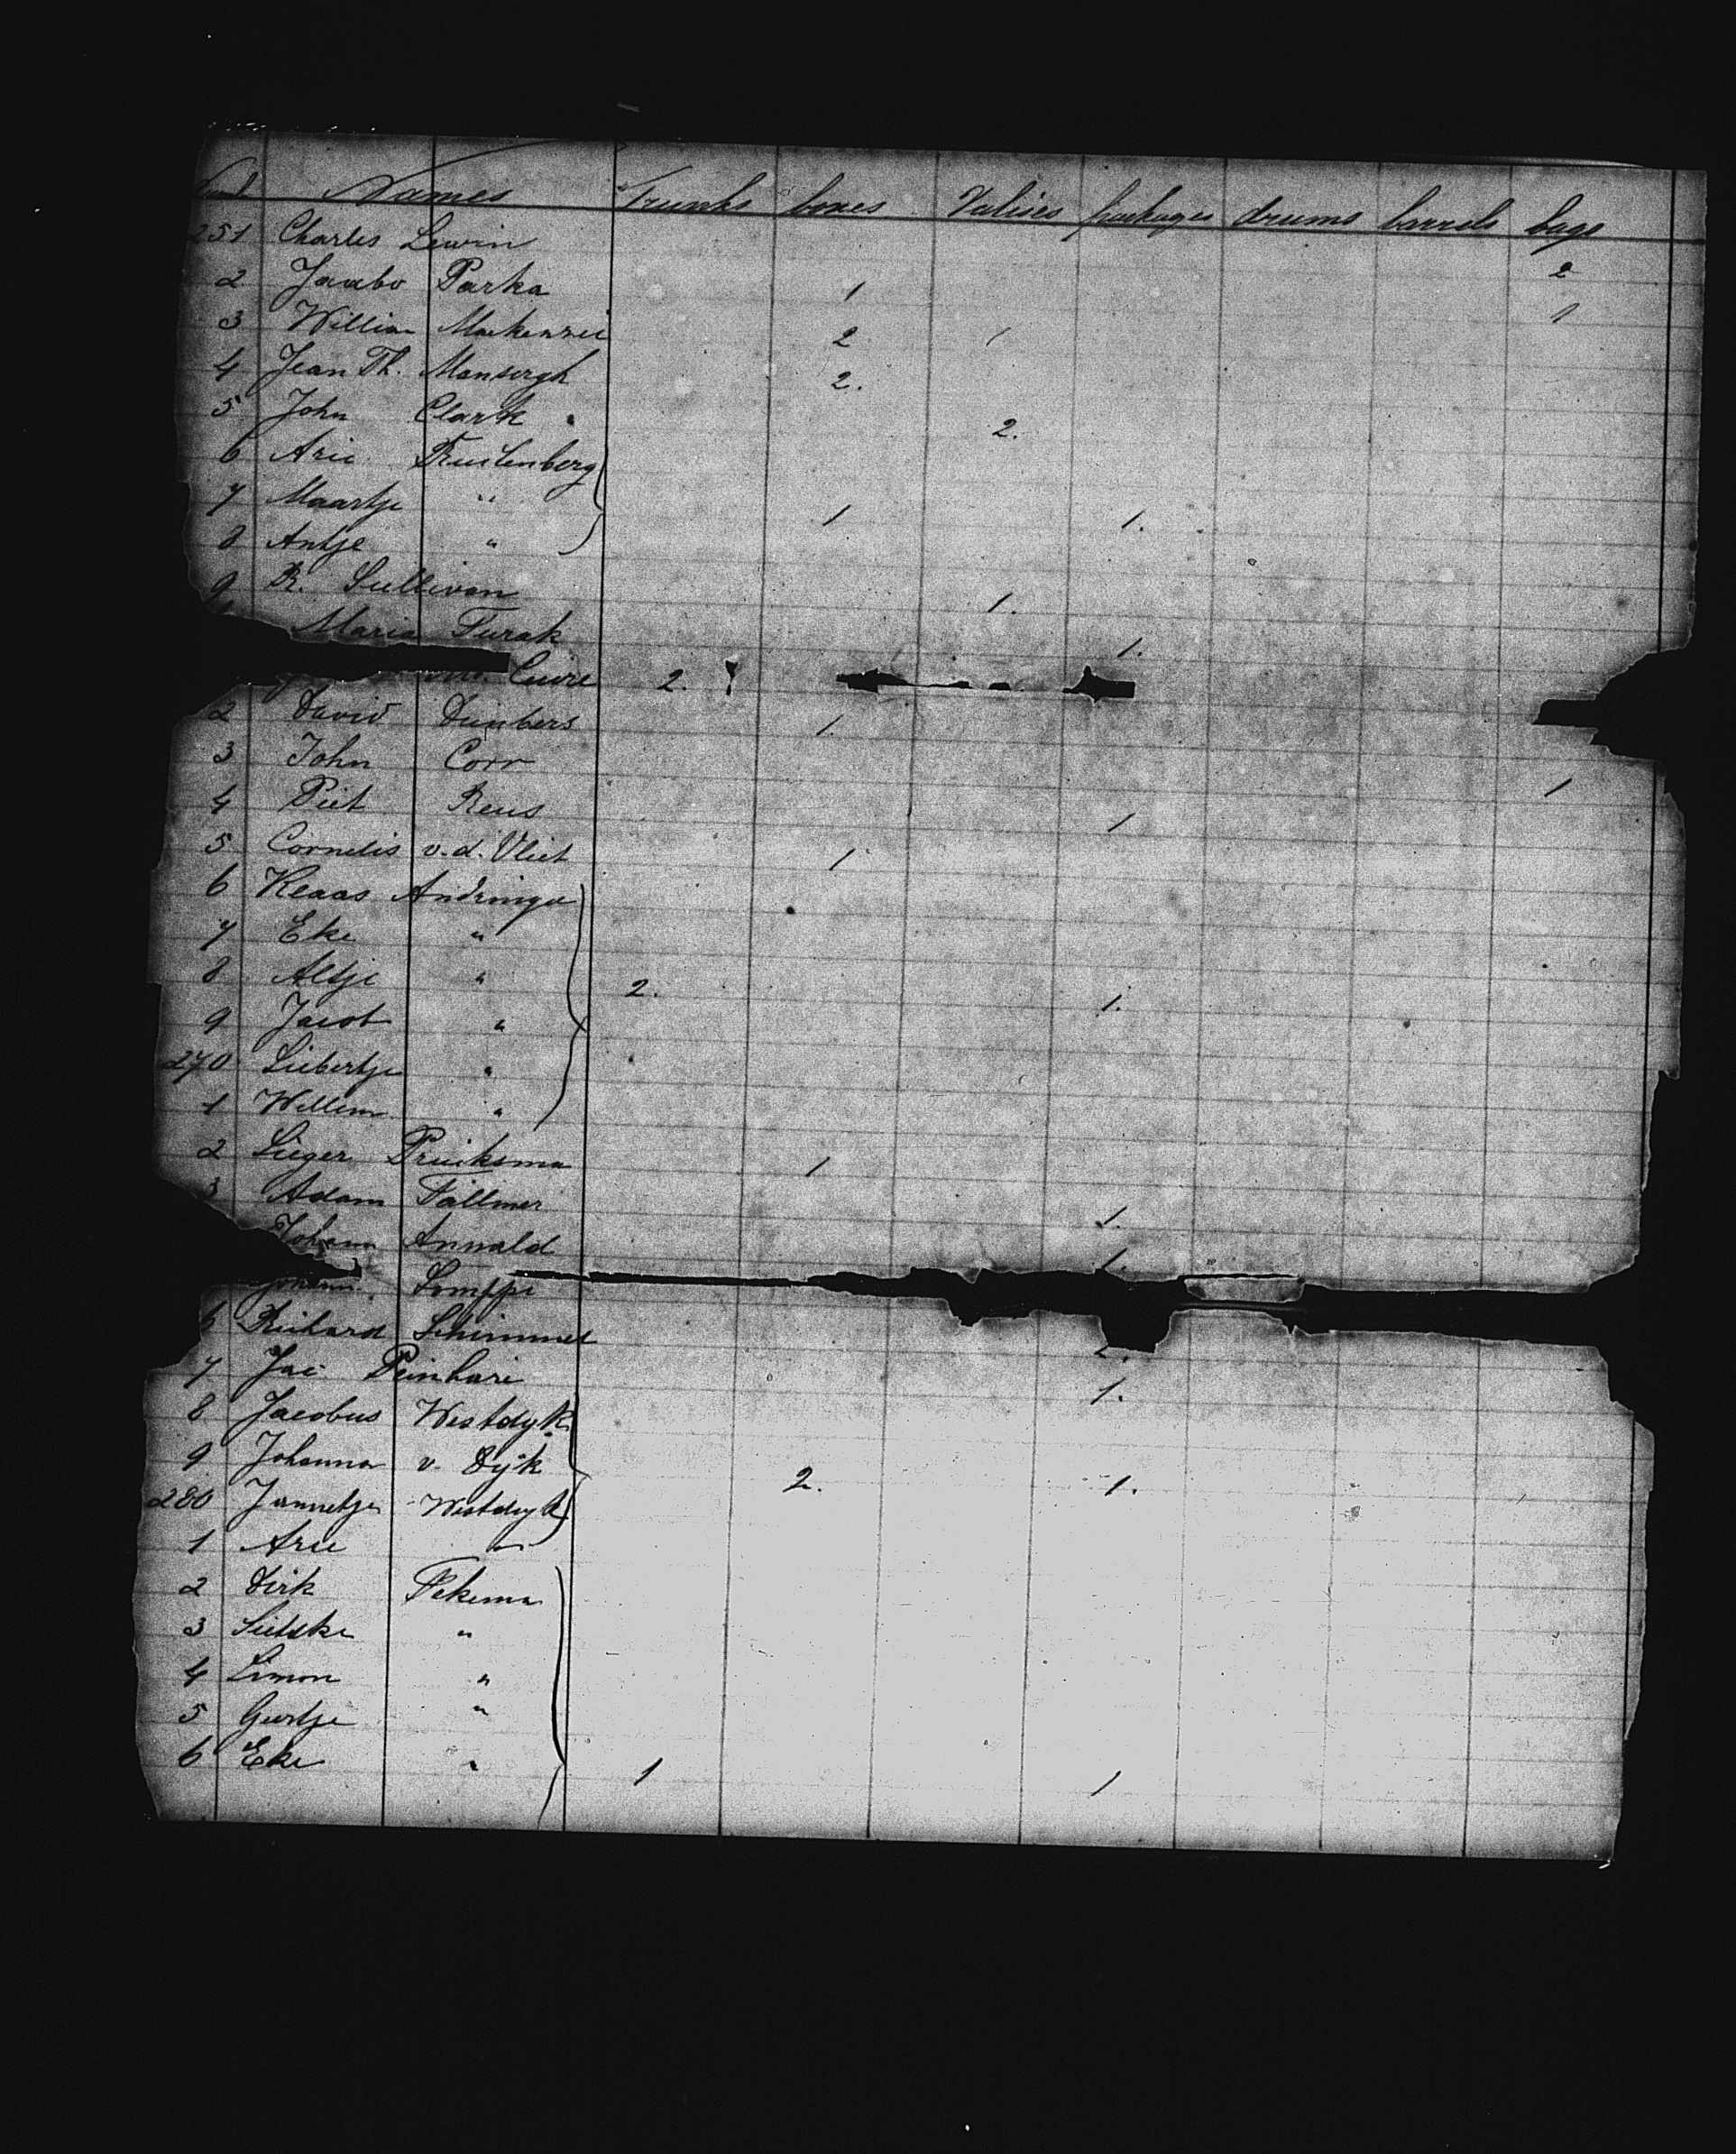 Names Trunks boxes Valises packages drums barrels bags
251 Charles Lewin 2
2 Jacabo Parka 1 1
3 William Mackenzie 2 1
4 Jean Th. Mansergh 2.
5 John Clark 2.
6 Arie Pruitenberg
7 Maartje " 1 1.
8 Antje "
9 R. Sullivan 1.
Maria Turak 1.
Cuire 2.
2 David Dunbers 1.
3 John Corr 1
4 Piet Reus 1
5 Cornelis v.d. Vliet 1
6 Klaas Andringa
7 Eke "
8 Altje " 2. 1.
9 Jacob "
270 Siebertje "
1 Willem "
2 Sieger Pruiksma 1
3 Adam Fallmer 1.
Johann Annald 1.
Johann Somppi
6 Richard Schimmel 2.
7 Jac. Peinhari 1.
8 Jacobus Westdyk
9 Johanna v. Dijk 2. 1.
280 Jannetje Westdyk
1 Arie "
2 Dirk Pekema
3 Sietske "
4 Simon "
5 Geertje "
6 Eke " 1 1